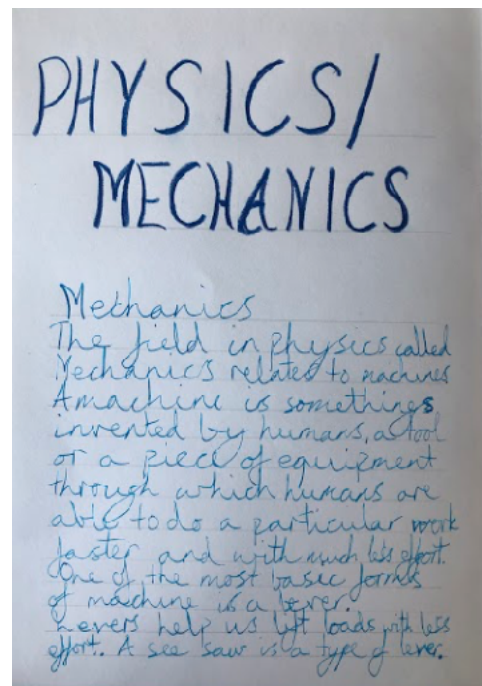 PHYSICS/
MECHANICS
Mechanics
The field in physics called
Mechanics relates to machines
A machine is somethings
invented by humans, a tool
or a piece of equipment
through which humans are
able to do a particular work
faster and with much less effort.
One of the most basic forms
of machine is a lever.
Levers help us lift loads with less
effort. A see saw is a type of lever.